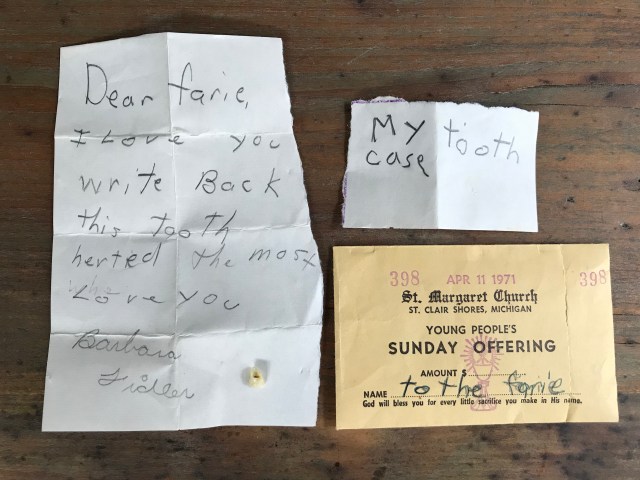 Dear farie,
I Love you
write Back
this tooth
herted the most
Love you
Barbara
Fidler
My tooth
case
398 APR 11 1971 398
St. Margaret Church
ST. CLAIR SHORES, MICHIGAN
YOUNG PEOPLE'S
SUNDAY OFFERING
AMOUNT $
NAME to the farie
God will bless you for every little sacrifice you make in His name.